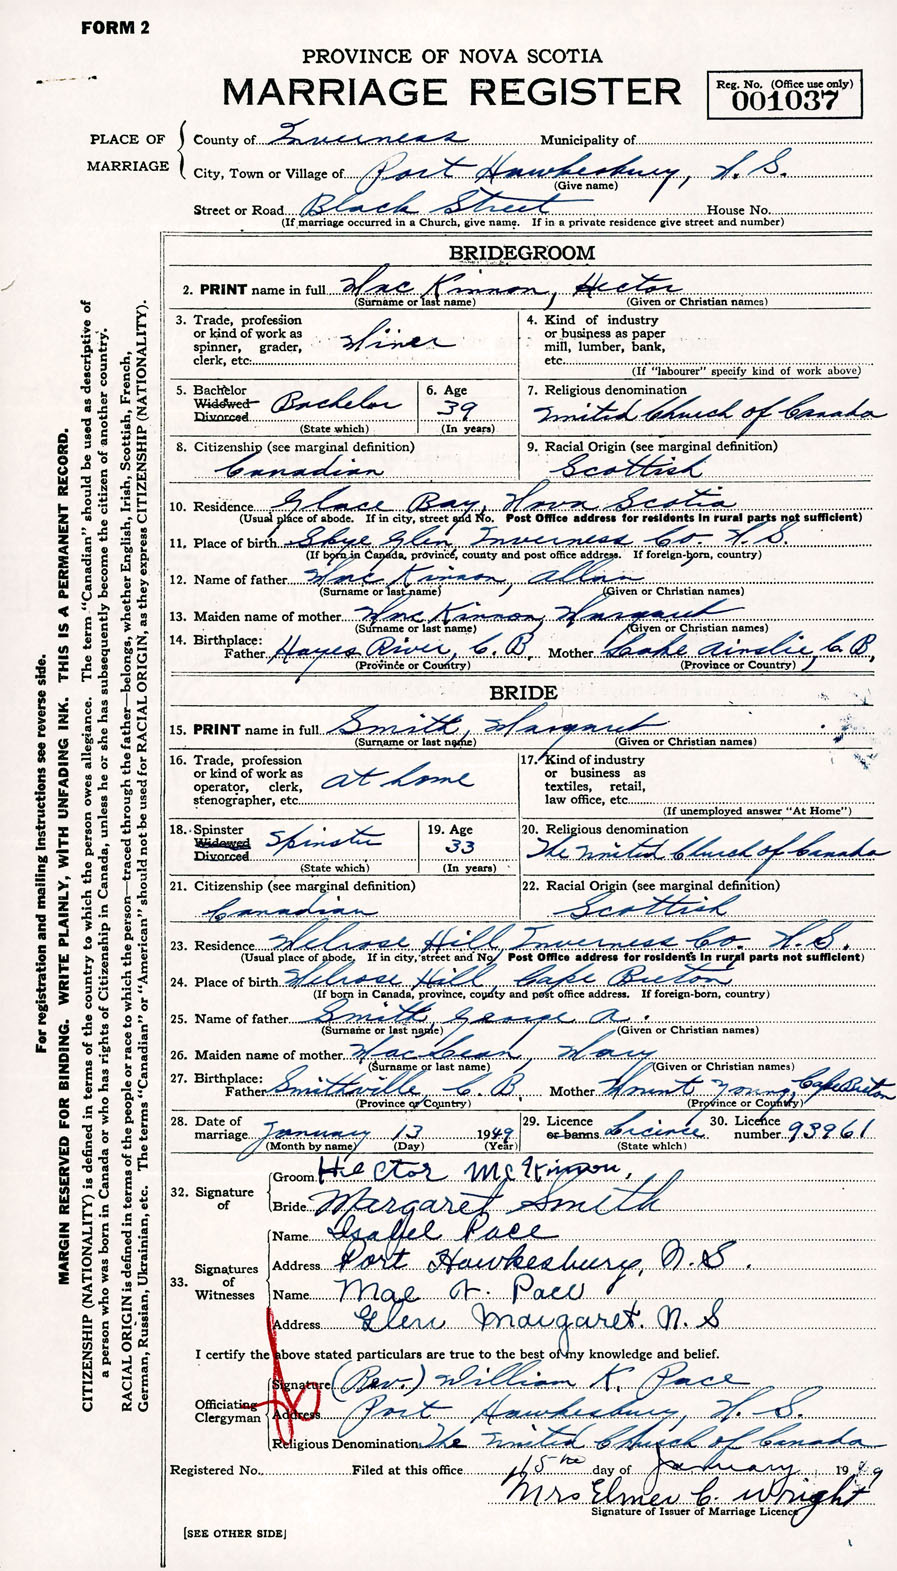 FORM 2
PROVINCE OF NOVA SCOTIA
MARRIAGE REGISTER
Reg. No. (Office use only)
001037
PLACE OF MARRIAGE
County of Inverness Municipality of
City, Town or Village of Port Hawkesbury, N. S.
(Give name)
Street or Road Black Street House No.
(If marriage occurred in a Church, give name. If in a private residence give street and number)
BRIDEGROOM
2. PRINT name in full Mac Kinnon, Hector
(Surname or last name) (Given or Christian names)
3. Trade, profession or kind of work as spinner, grader, clerk, etc. Miner
4. Kind of industry or business as paper mill, lumber, bank, etc.
(If "labourer" specify kind of work above)
5. Bachelor Widowed Divorced Bachelor
(State which)
6. Age 39
(In years)
7. Religious denomination
United Church of Canada
8. Citizenship (see marginal definition)
Canadian
9. Racial Origin (see marginal definition)
Scottish
10. Residence Glace Bay, Nova Scotia
(Usual place of abode. If in city, street and No. Post Office address for residents in rural parts not sufficient)
11. Place of birth Skye Glen Inverness Co. N. S.
(If born in Canada, province, county and post office address. If foreign-born, country)
12. Name of father Mac Kinnon, Allan
(Surname or last name) (Given or Christian names)
13. Maiden name of mother Mac Kinnon, Margaret
(Surname or last name) (Given or Christian names)
14. Birthplace:
Father Hayes River, C. B. Mother Lake Ainslie, C. B.
(Province or Country) (Province or Country)
BRIDE
15. PRINT name in full Smith, Margaret
(Surname or last name) (Given or Christian names)
16. Trade, profession or kind of work as operator, clerk, stenographer, etc. at home
17. Kind of industry or business as textiles, retail, law office, etc.
(If unemployed answer "At Home")
18. Spinster Widowed Divorced Spinster
(State which)
19. Age 33
(In years)
20. Religious denomination
The United Church of Canada
21. Citizenship (see marginal definition)
Canadian
22. Racial Origin (see marginal definition)
Scottish
23. Residence Melrose Hill, Inverness Co. N. S.
(Usual place of abode. If in city, street and No. Post Office address for residents in rural parts not sufficient)
24. Place of birth Melrose Hill, Cape Breton
(If born in Canada, province, county and post office address. If foreign-born, country)
25. Name of father Smith, George A.
(Surname or last name) (Given or Christian names)
26. Maiden name of mother MacLean, Mary
(Surname or last name) (Given or Christian names)
27. Birthplace:
Father Smithville, C. B. Mother Mount Young, Cape Breton
(Province or Country) (Province or Country)
28. Date of marriage January 13 1949
(Month by name) (Day) (Year)
29. Licence or banns Licence
(State which)
30. Licence number 93961
32. Signature of
Groom Hector McKinnon,
Bride Margaret Smith
33. Signatures of Witnesses
Name Isabel Pace
Address Port Hawkesbury, N.S.
Name Mae H. Pace
Address Glen Margaret. N. S
I certify the above stated particulars are true to the best of my knowledge and belief.
Officiating Clergyman
Signature (Rev.) William K. Pace
Address Port Hawkesbury, N. S.
Religious Denomination The United Church of Canada
Registered No. Filed at this office 15 day of January 1949
Mrs Elmer C. Wright
Signature of Issuer of Marriage Licence
[SEE OTHER SIDE]
For registration and mailing instructions see reverse side.
MARGIN RESERVED FOR BINDING. WRITE PLAINLY, WITH UNFADING INK. THIS IS A PERMANENT RECORD.
CITIZENSHIP (NATIONALITY) is defined in terms of the country to which the person owes allegiance. The term "Canadian" should be used as descriptive of
a person who was born in Canada or who has rights of Citizenship in Canada, unless he or she has subsequently become the citizen of another country.
RACIAL ORIGIN is defined in terms of the people or race to which the person—traced through the father—belongs, whether English, Irish, Scottish, French,
German, Russian, Ukrainian, etc. The terms "Canadian" or "American" should not be used for RACIAL ORIGIN, as they express CITIZENSHIP (NATIONALITY).